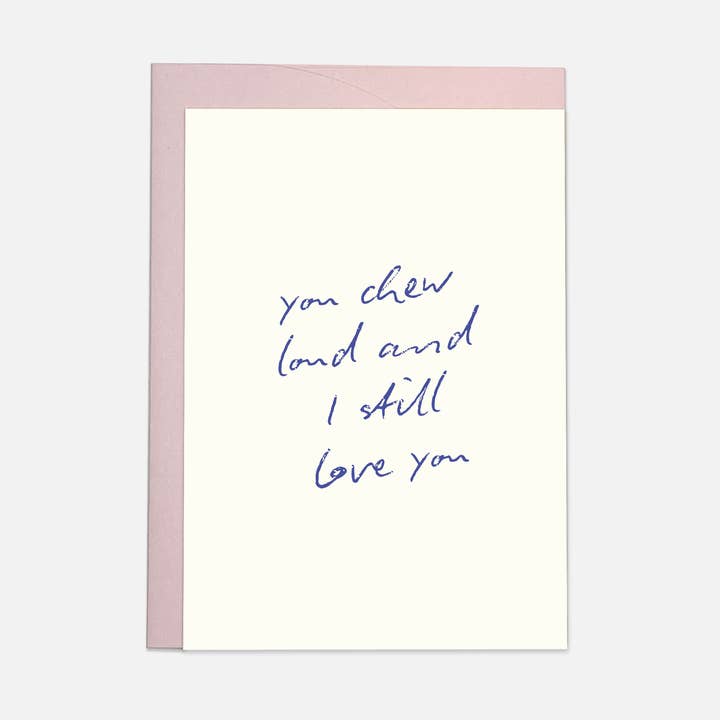 you chew
loud and
I still
love you